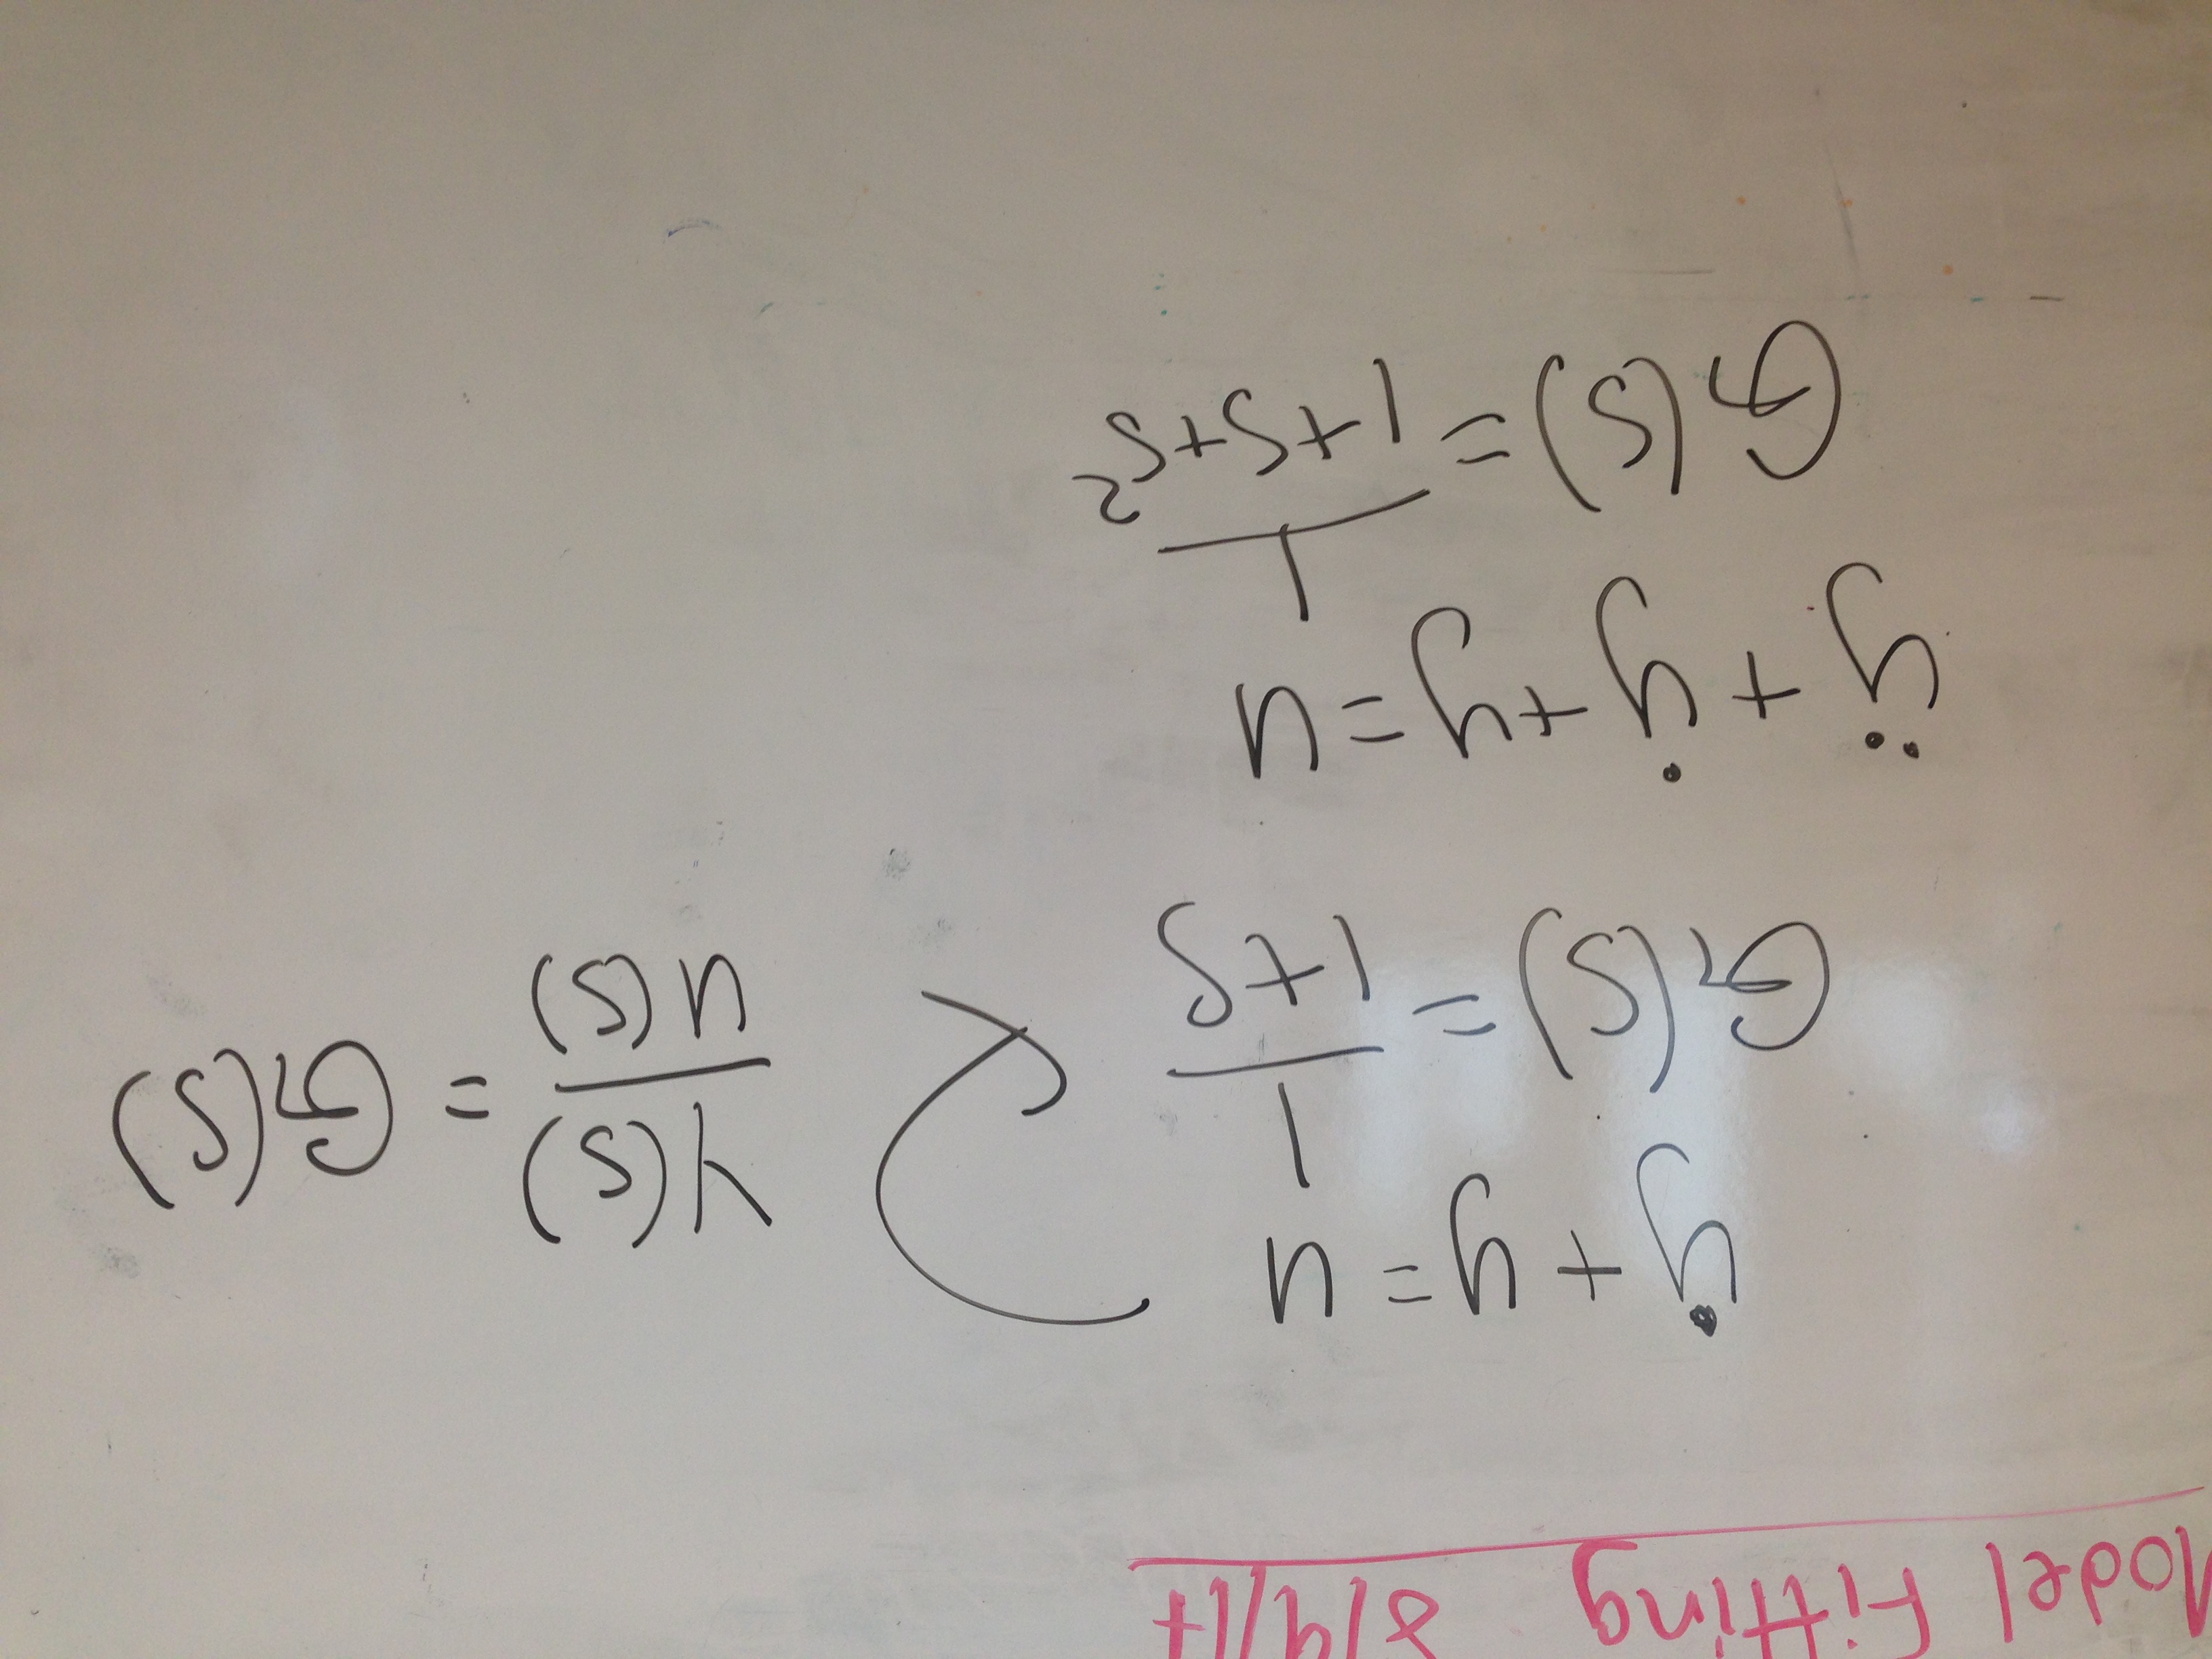 Model Fitting 8/9/17
ẏ + y = u
G(s) = 1/(1+s)
Y(s)/U(s) = G(s)
ÿ + ẏ + y = u
G(s) = 1/(1+s+s²)